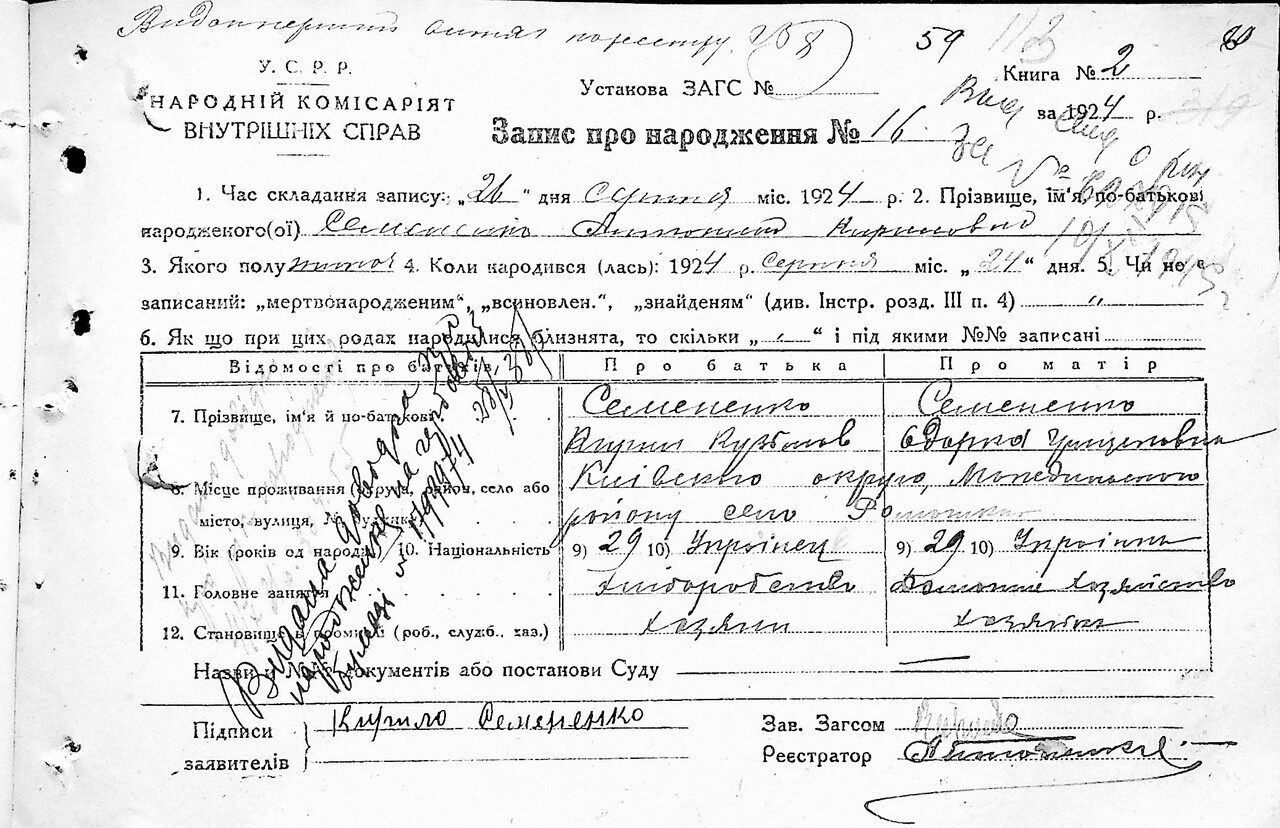 витяг по реєстру 258
59 113
У. С. Р. Р.
НАРОДНІЙ КОМІСАРІЯТ
ВНУТРІШНІХ СПРАВ
Установа ЗАГС №
Книга № 2
за 1924 р. 319
Запис про народження № 16
1. Час складання запису: „26“ дня Серпня міс. 1924 р. 2. Прізвище, ім'я, по-батькові
народженого(ої) Семененко Антонина Кириловна
3. Якого полу жіноч 4. Коли народився (лась): 1924 р. Серпня міс. „24“ дня. 5. Чи не є
записаний: „мертвонародженим“, „всиновлен.“, „знайденям“ (див. Інстр. розд. III п. 4) „
6. Як що при цих родах народилися близнята, то скільки „ “ і під якими №№ записані
Відомості про батьків Про батька Про матір
7. Прізвище, ім'я й по-батькові Семененко Семененко
Кирил Кузьмов Одарка Грицьковна
8. Місце проживання (округа, район, село або Київської округи,
місто, вулиця, № будинку) району село Ромашки
9. Вік (років од народж.) 10. Національність 9) 29 10) Українец 9) 29 10) Українка
11. Головне заняття хліборобство Домашнє хозяйство
12. Становище в промислі (роб., служб., хаз.) хозяин хозяйка
Назви и №№ документів або постанови Суду
Підписи
заявителів Кирило Семененко
Зав. Загсом
Реєстратор
Видана довідка про
народження на гербовій
бумазі № 1939-74